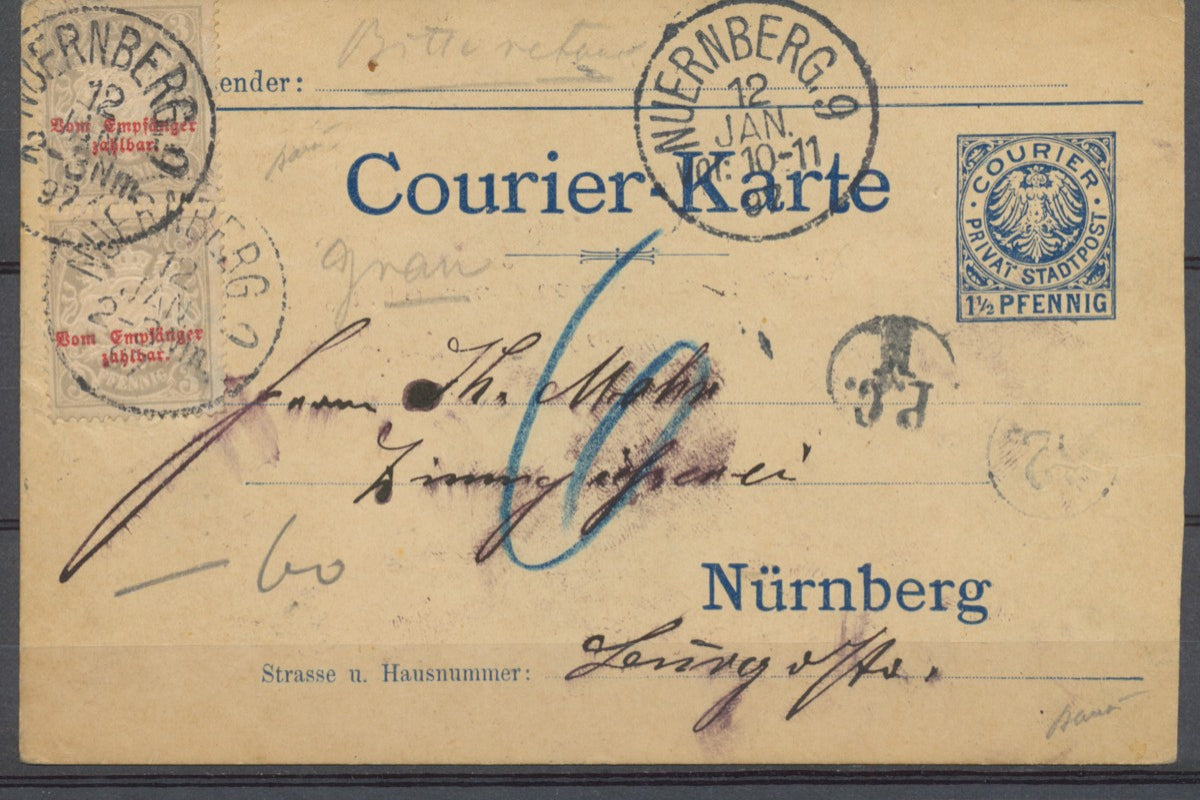 Bitte retour
ender:
NUERNBERG. 9
12
JAN.
Vor. 10-11
97
NUERNBERG. 9
12
JAN.
Nm.
97
Vom Empfänger
zahlbar.
3
Courier-Karte
COURIER
PRIVAT STADTPOST
1½ PFENNIG
grau
NUERNBERG. 2
12
JAN.
Vom Empfänger
zahlbar.
3 PFENNIG 3
6
T
P.C.
Herrn Th. Mohr
2
60
Nürnberg
Strasse u. Hausnummer: Burgstr.